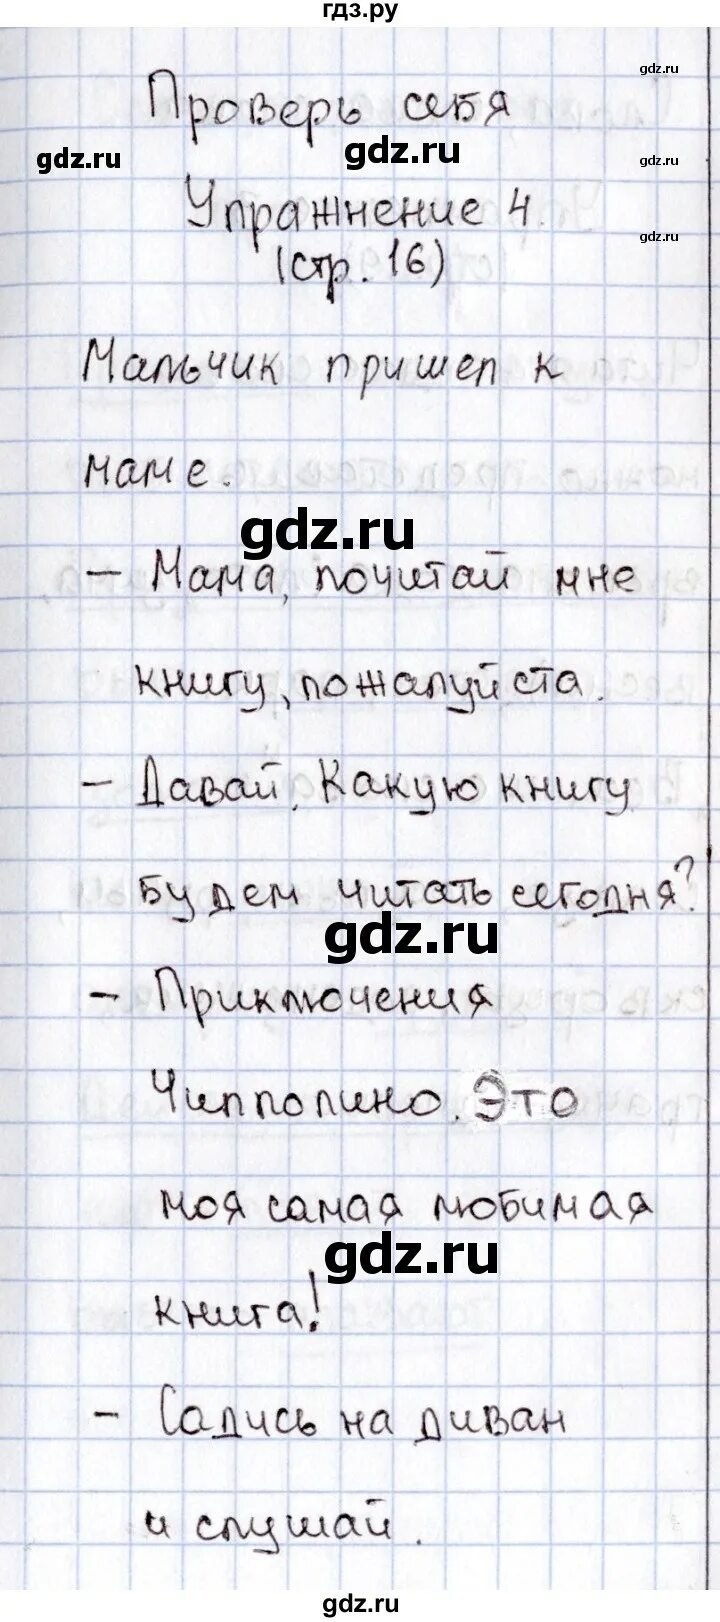 гдз.ру
gdz.ru
Проверь себя
gdz.ru
gdz.ru
gdz.ru
Упражнение 4.
gdz.ru
(стр. 16)
Мальчик пришел к
маме.
gdz.ru
– Мама, почитай мне
книгу, пожалуйста.
– Давай. Какую книгу
будем читать сегодня?
gdz.ru
– Приключения
Чипполино. Это
моя самая любимая
gdz.ru
книга!
– Садись на диван
и слушай.
gdz.ru